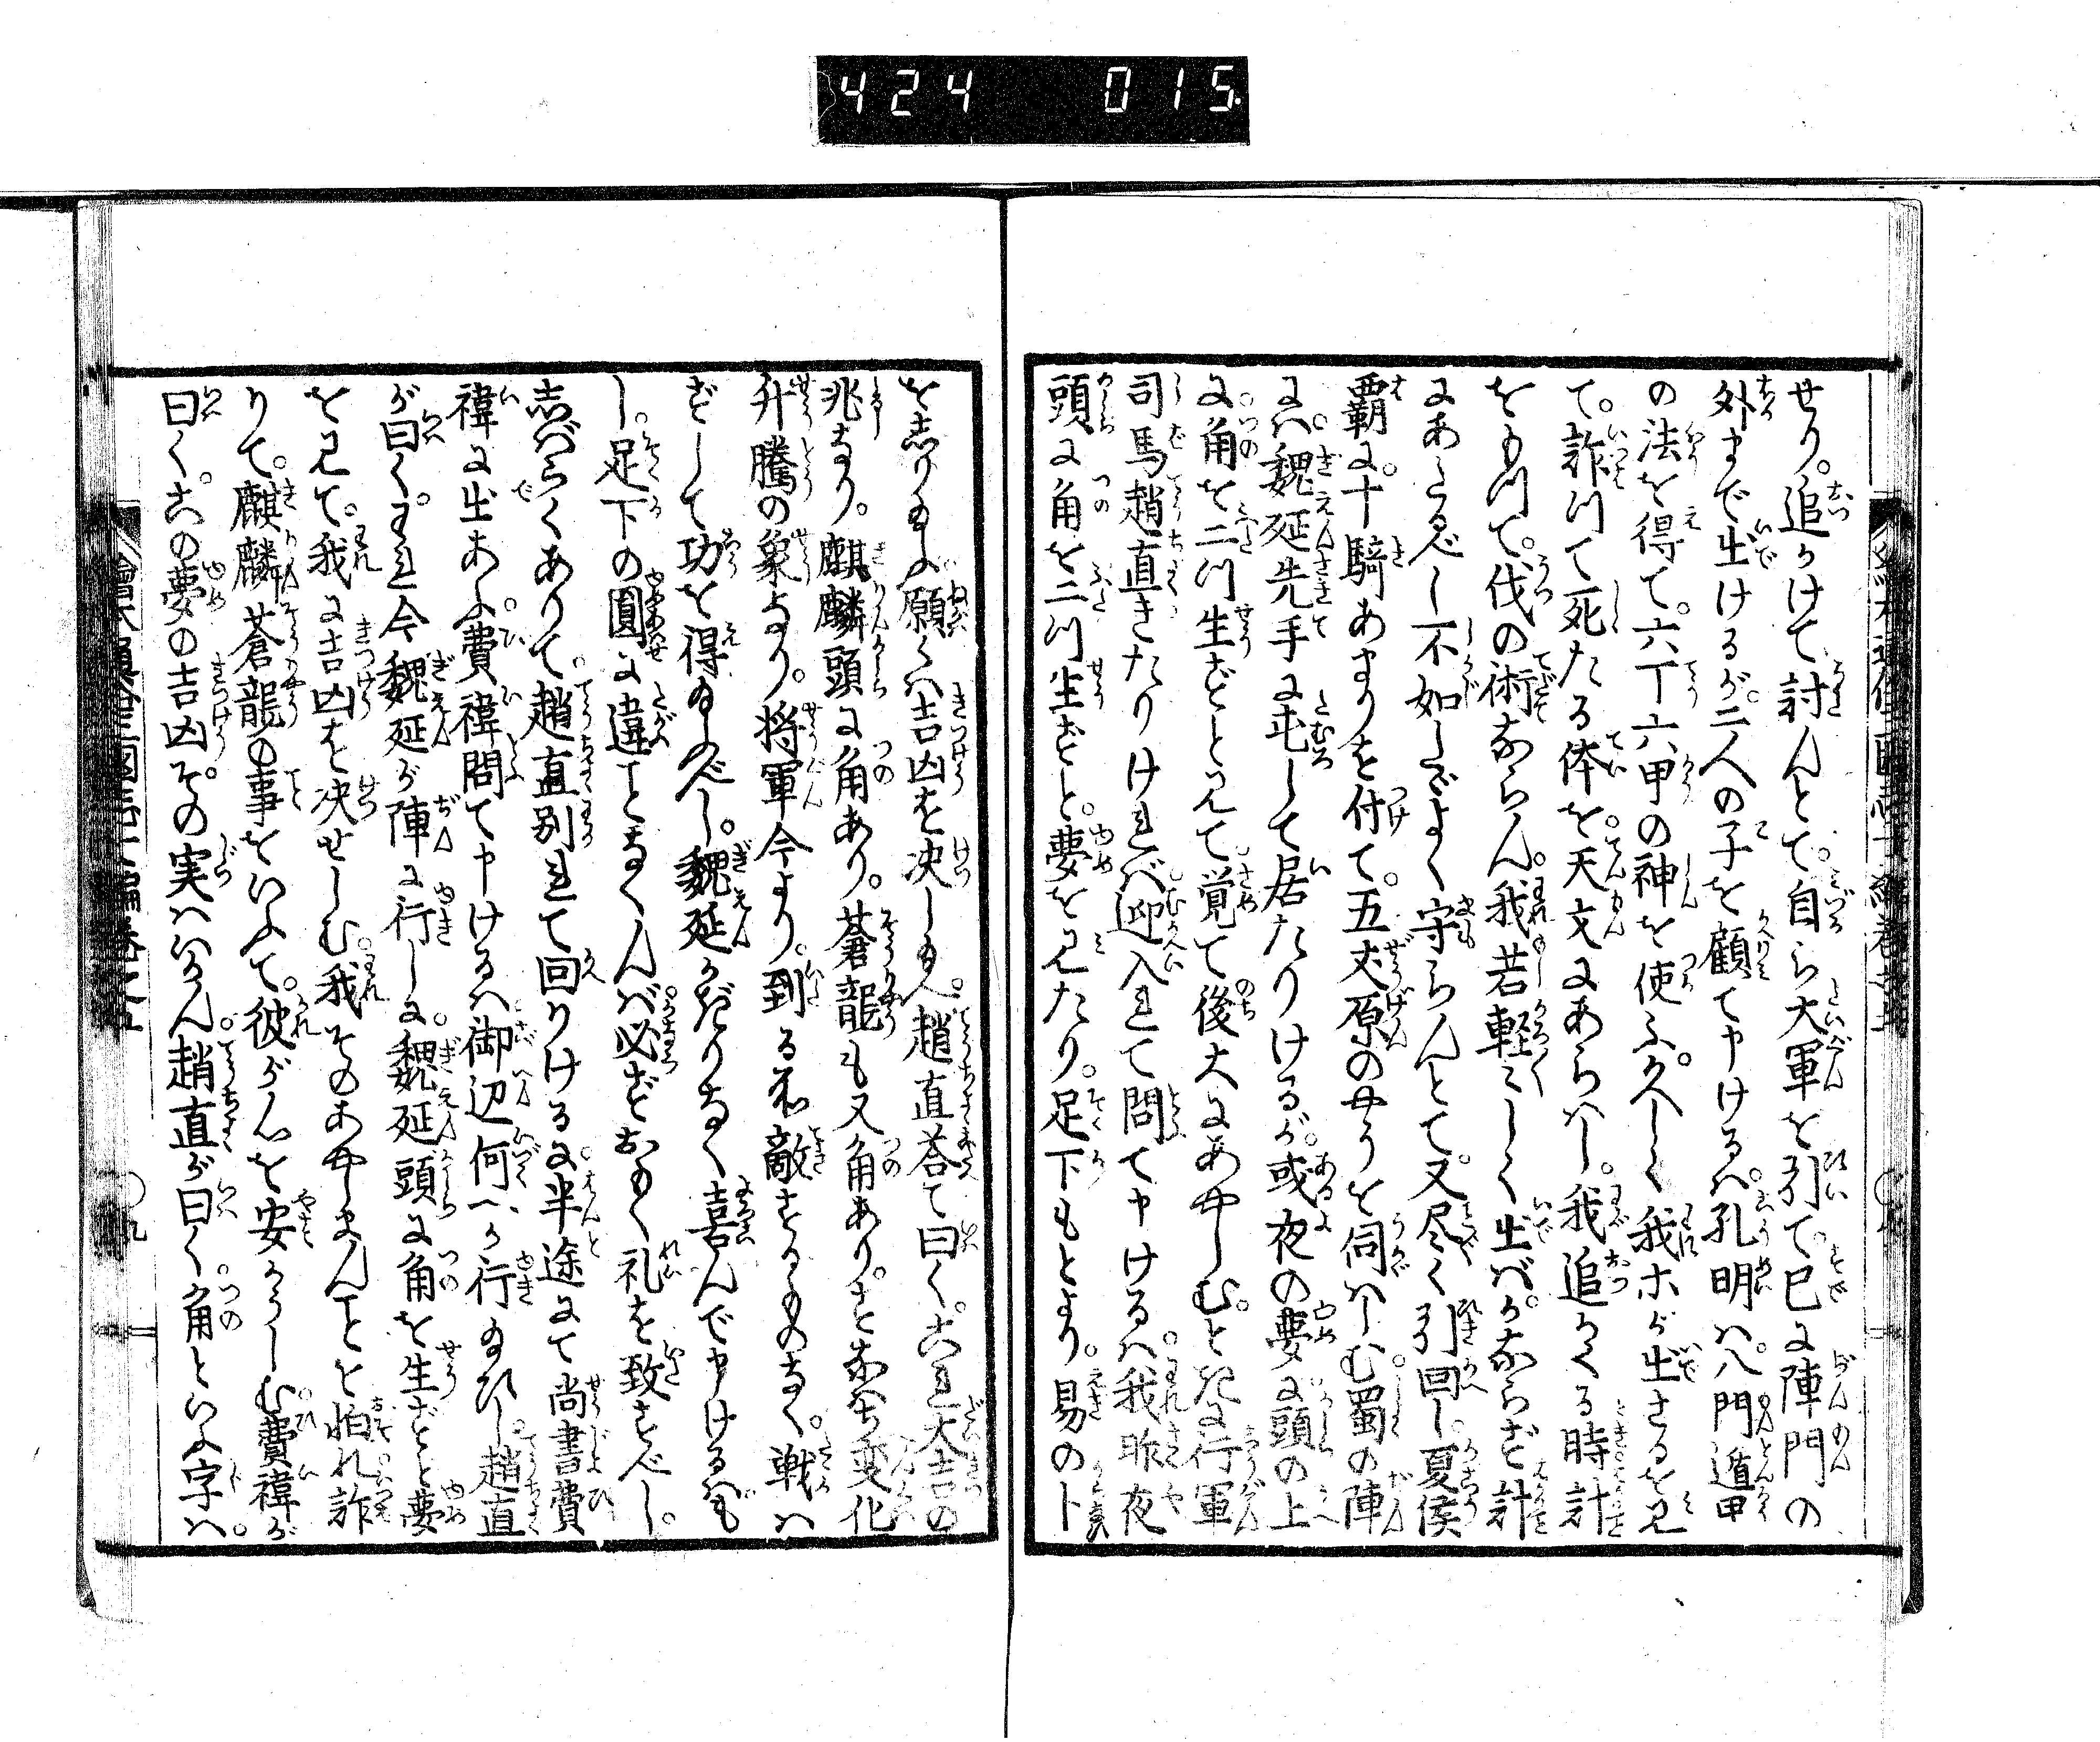 424 015
せり。追かけて討んとて。自ら大軍を引て已に陣門の
外まで出けるが。二人の子を顧て申けるハ。孔明ハ。八門遁甲
の法を得て。六丁六甲の神を使ふ。久しく我ホが出ざるを見
て。詐りて死たる体を。天文にあらハし。我追かくる時計
をもつて。伐の術ならん。我若軽〻しく出バ。かならず計
にあたるべし。不如たゞよく守らんとて。又尽く引回し。夏侯
覇に。十騎あまりを付て。五丈原のやうを伺ハしむ。蜀の陣
にハ。魏延先手に屯して居たりけるが。或夜の夢に頭の上
に。角を二ツ生ずと見て。覚て後大にあやしむ。とき行軍
司馬趙直きたりけれバ。迎入れて問て申けるハ。我昨夜
頭に角を二ツ生ずと。夢を見たり。足下もとより。易のト
を志り給ふ。願くハ吉凶を决し給へ。趙直荅て曰く。これ大吉の
兆なり。麒麟頭に角あり。蒼龍も又角あり。これ変化
升騰の象なり。将軍今より。到る所敵するものなく。戦ハ
ずして功を得給ふべし。魏延かぎりなく喜んで申けるハ。も
し。足下の圓に違ことなくんバ。必ずあつく礼を致すべし。
志バらくありて。趙直別れて回りけるに。半途にて尚書費
禕に出あふ。費禕問て申けるハ。御辺何へか行給ひし。趙直
が曰く。われ今魏延が陣に行しに。魏延頭に角を生ずと夢
を見て。我に吉凶を决せしむ。我そのあやまんことを怕れ。詐
りて。麒麟蒼龍の事をいふて。彼が心を安からしむ。費禕が
曰く。この夢の吉凶。その実ハいかん。趙直が曰く。角といふ字ハ。